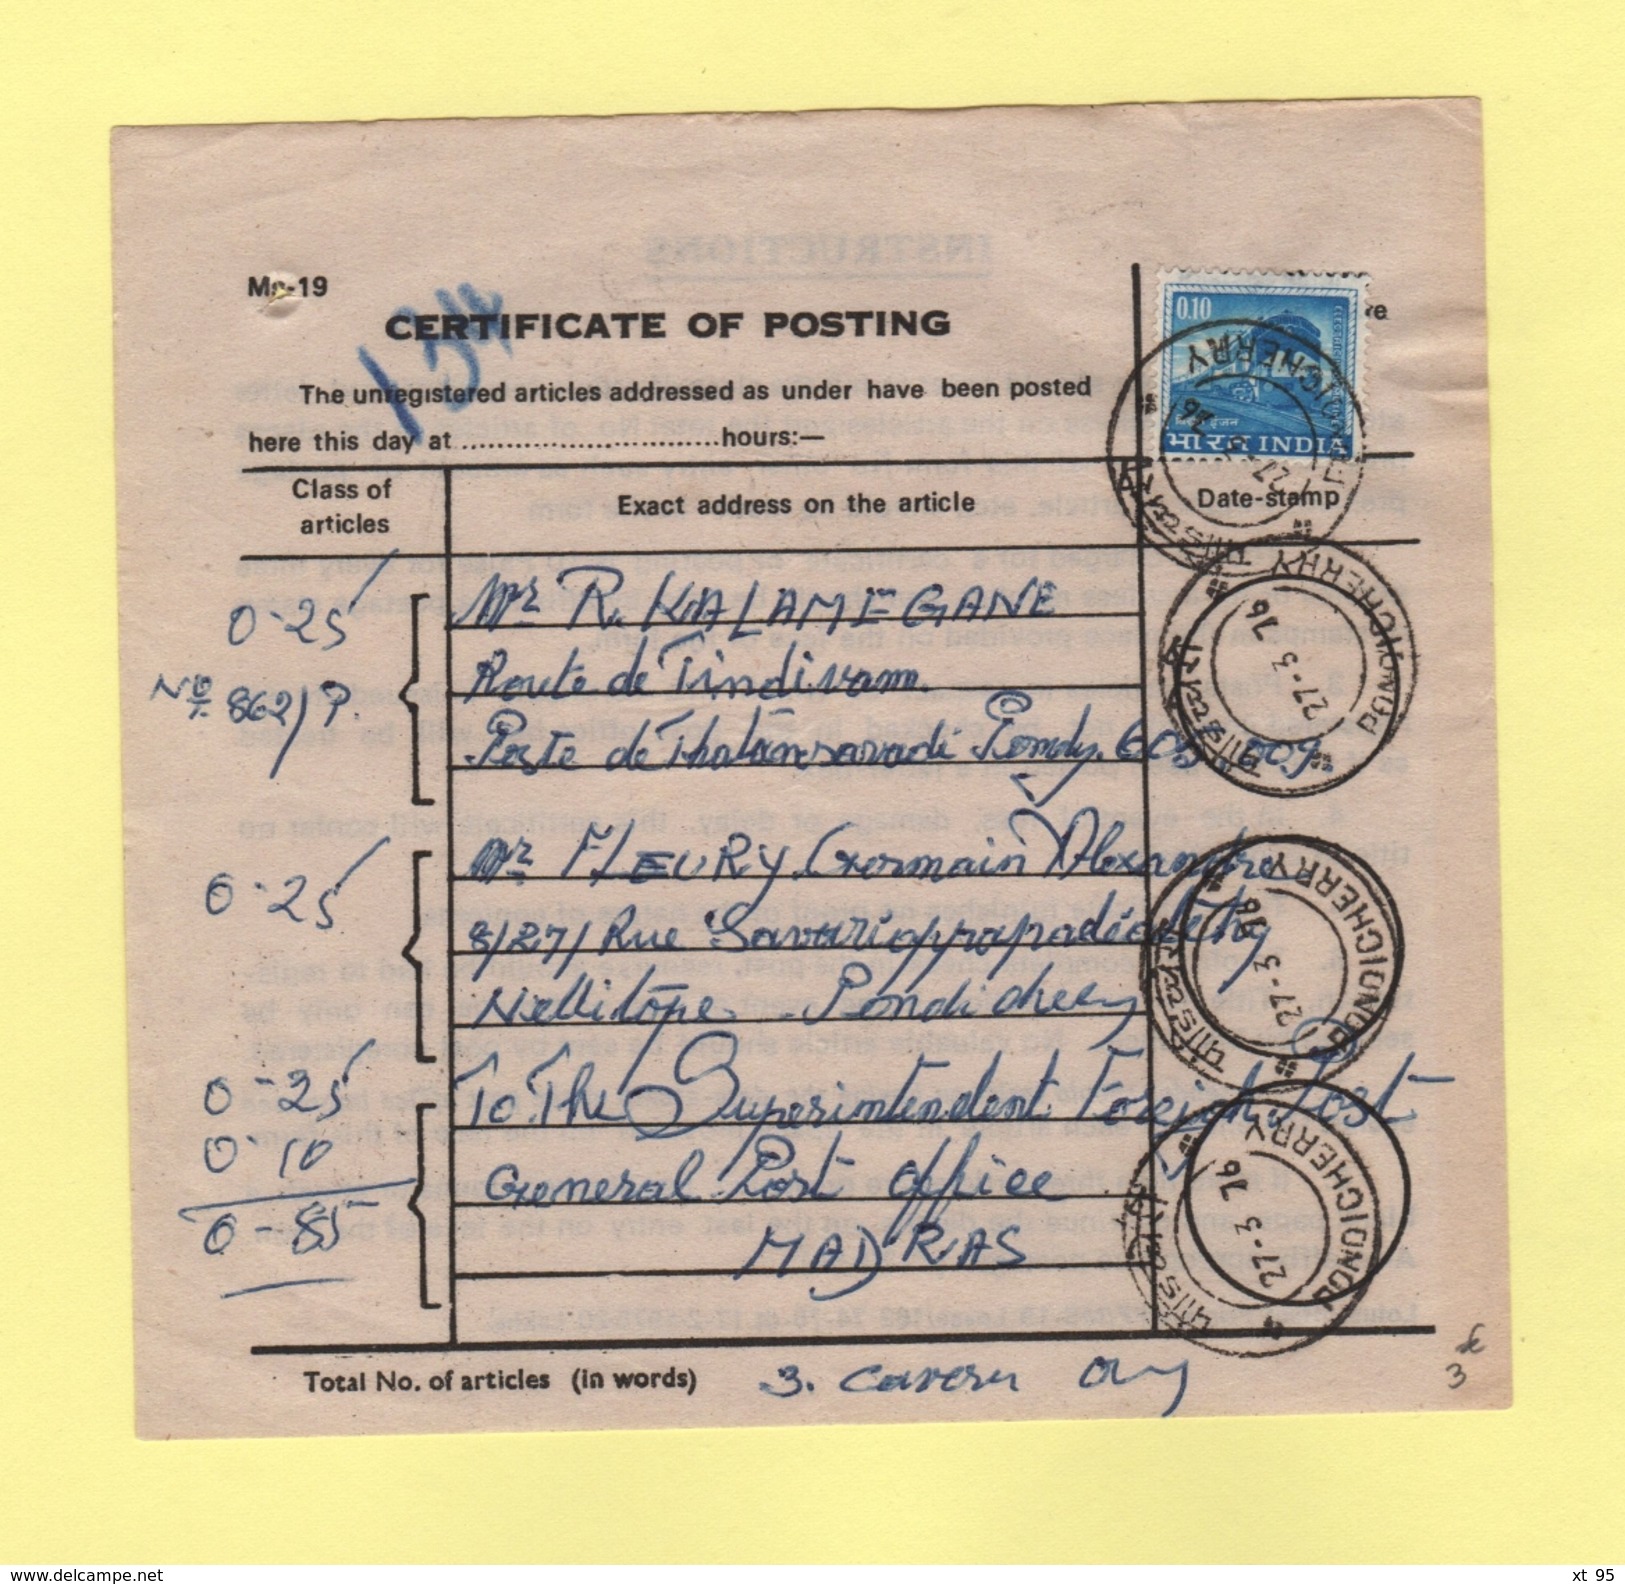 Ms-19
134
CERTIFICATE OF POSTING
The unregistered articles addressed as under have been posted
here this day at ............................hours:—
0.10
भारत INDIA
Class of
articles
Exact address on the article
Date-stamp
PONDICHERRY
27-3 76
0-25
Mr R. KALAMEGANE
No 862/P.
Route de Tindivam
Poste de Pondy. 605 009.
PONDICHERRY
27-3 76
0-25
Mr FLEURY Germain Alexandre
8/27/ Rue
Nellitope - Pondichery
PONDICHERRY
27-3 76
0-25
To The Superintendent Foreign Post
0-10
General Post Office
0-85
MADRAS
PONDICHERRY
27-3 76
Total No. of articles (in words) 3. Only
3
delcampe.net
xt 95